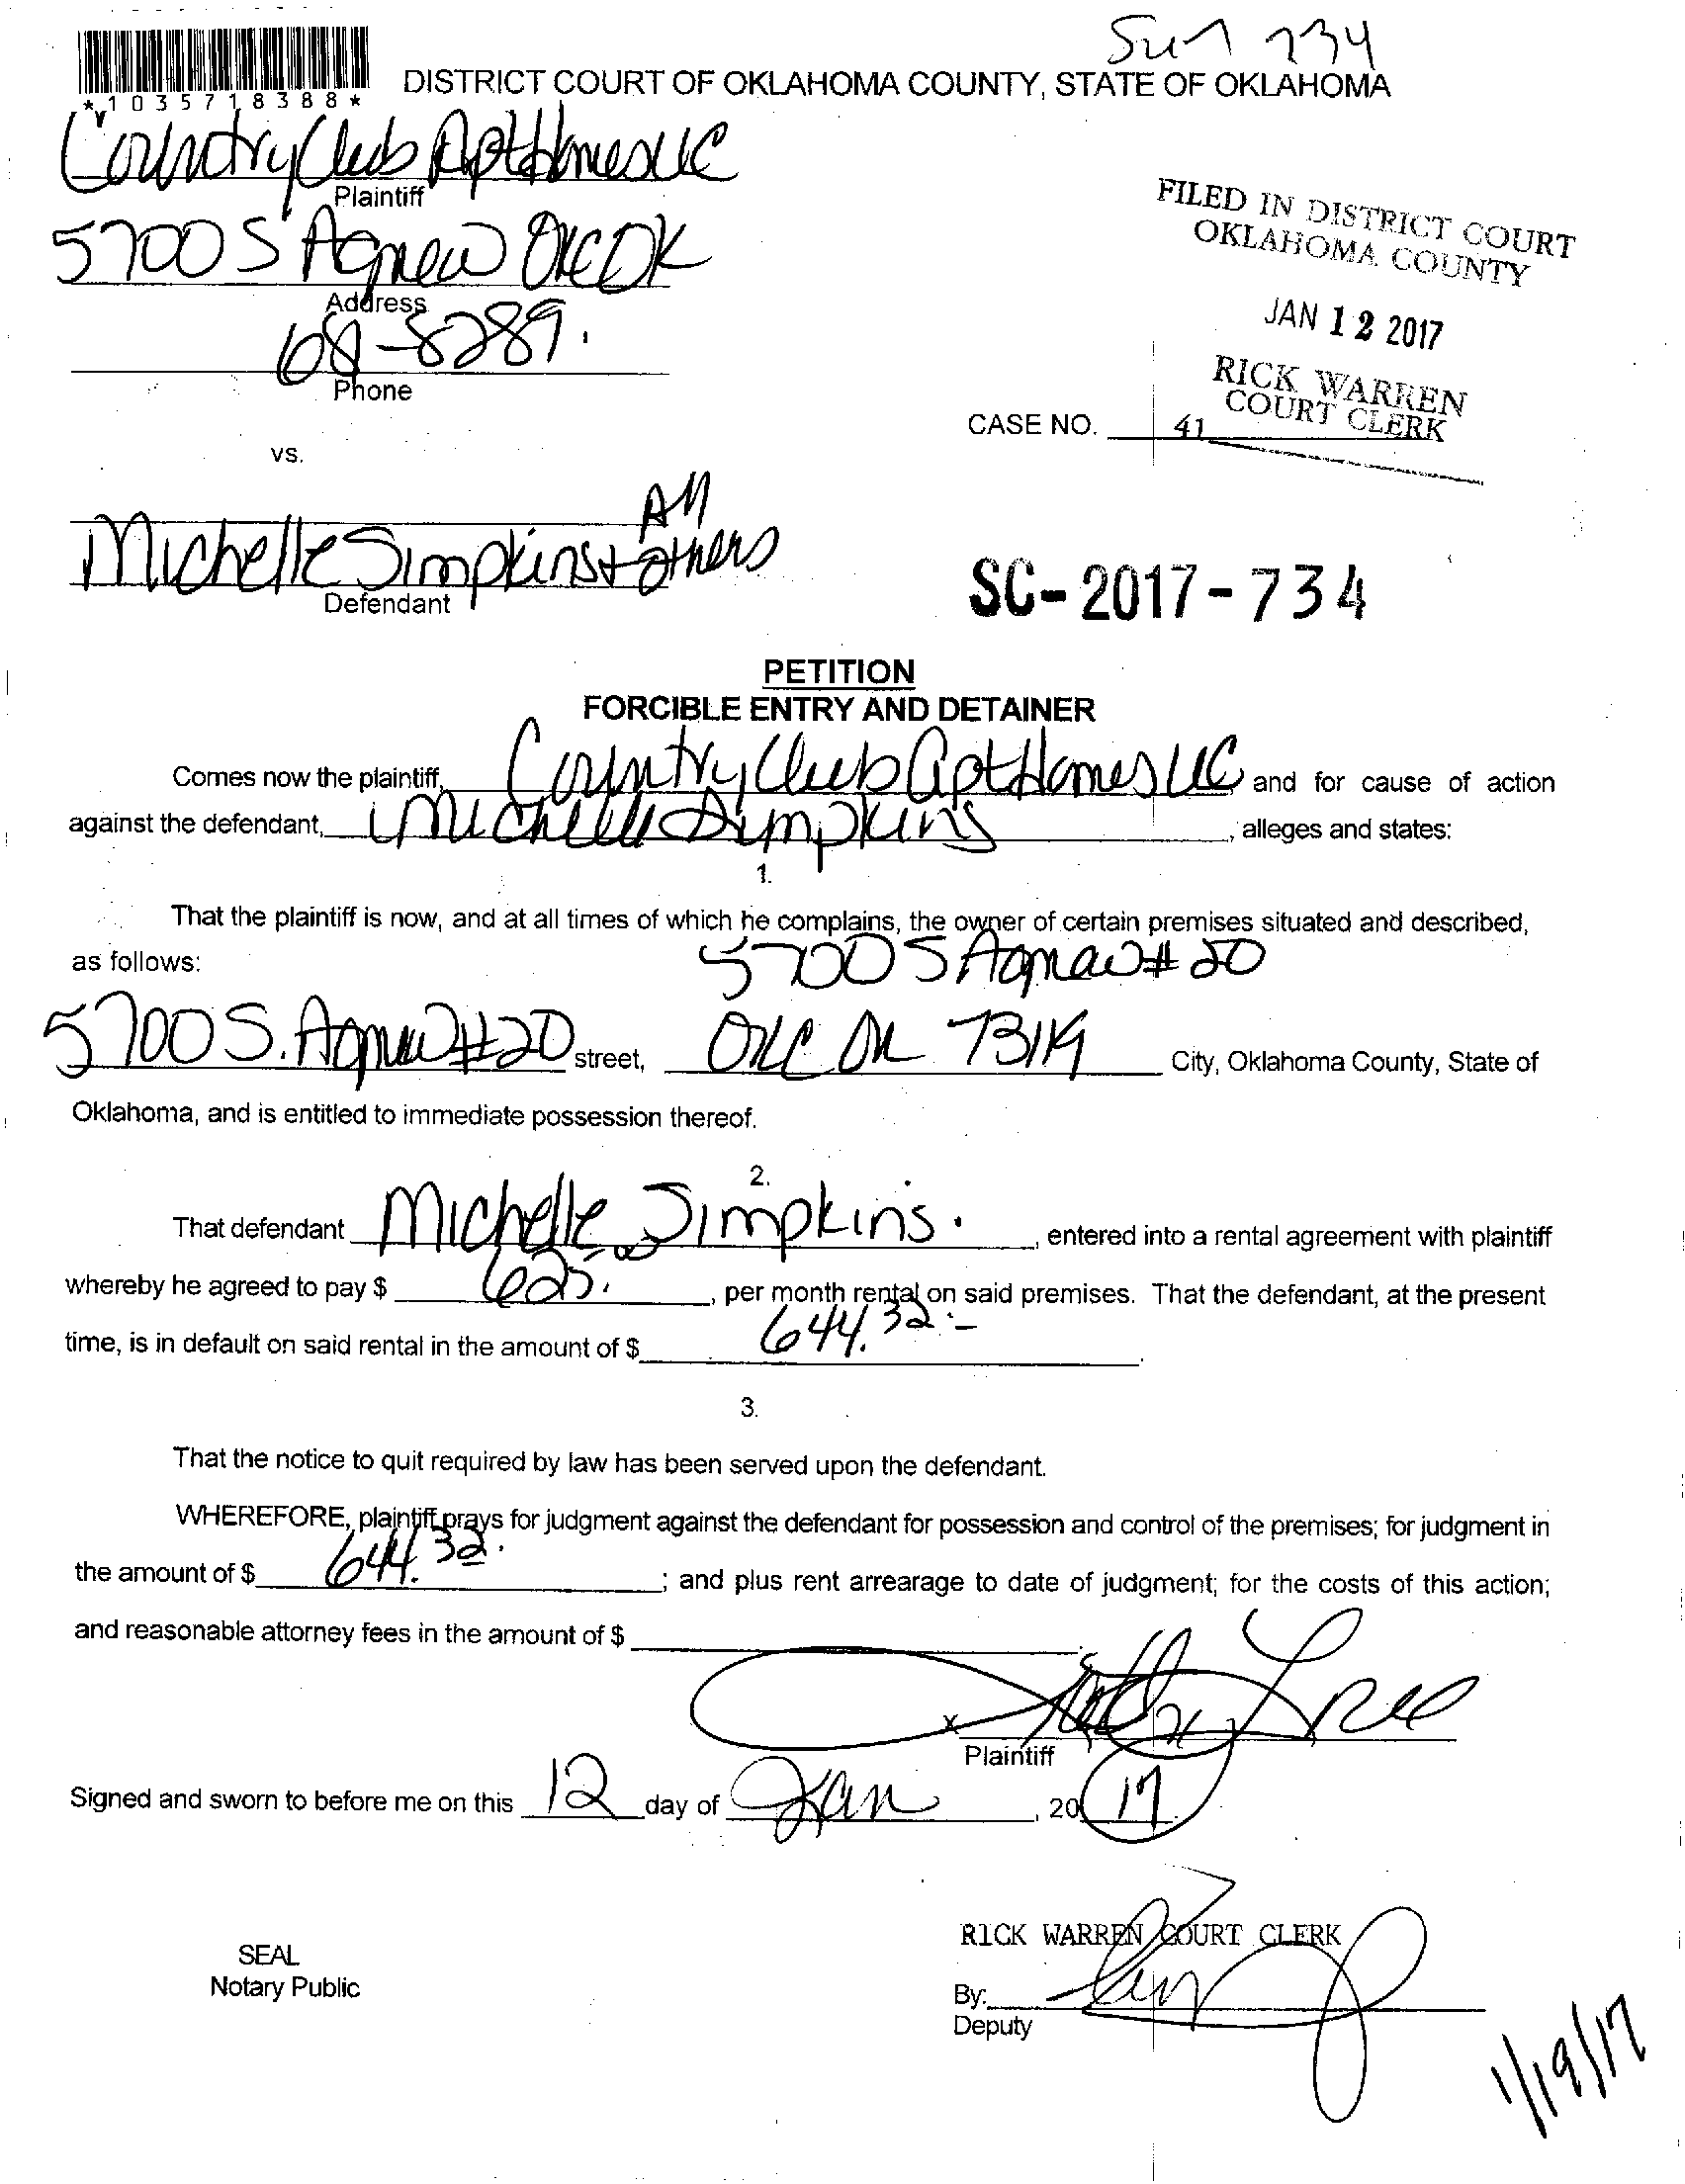 DISTRICT COURT OF OKLAHOMA COUNTY, STATE OF OKLAHOMA
*1035718388*
Country Club Apt Homes LLC
Plaintiff
5700 S Agnew OKC OK
Address
Phone
FILED IN DISTRICT COURT
OKLAHOMA COUNTY
JAN 12 2017
RICK WARREN
COURT CLERK
CASE NO.
41
vs.
Michelle Simpkins + All others
Defendant
SC-2017-734
PETITION
FORCIBLE ENTRY AND DETAINER
Comes now the plaintiff, Country Club Apt Homes LLC and for cause of action
against the defendant, Michelle Simpkins, alleges and states:
1.
That the plaintiff is now, and at all times of which he complains, the owner of certain premises situated and described,
as follows: 5700 S Agnew #20
5700 S. Agnew #20 street, OKC OK 73119 City, Oklahoma County, State of
Oklahoma, and is entitled to immediate possession thereof.
2.
That defendant Michelle Simpkins, entered into a rental agreement with plaintiff
whereby he agreed to pay $ 625.00, per month rental on said premises. That the defendant, at the present
time, is in default on said rental in the amount of $ 644.32.
3.
That the notice to quit required by law has been served upon the defendant.
WHEREFORE, plaintiff prays for judgment against the defendant for possession and control of the premises; for judgment in
the amount of $ 644.32; and plus rent arrearage to date of judgment; for the costs of this action;
and reasonable attorney fees in the amount of $
x
Plaintiff
Signed and sworn to before me on this 12 day of Jan, 20 17
RICK WARREN COURT CLERK
SEAL
Notary Public
By:
Deputy
1/19/17